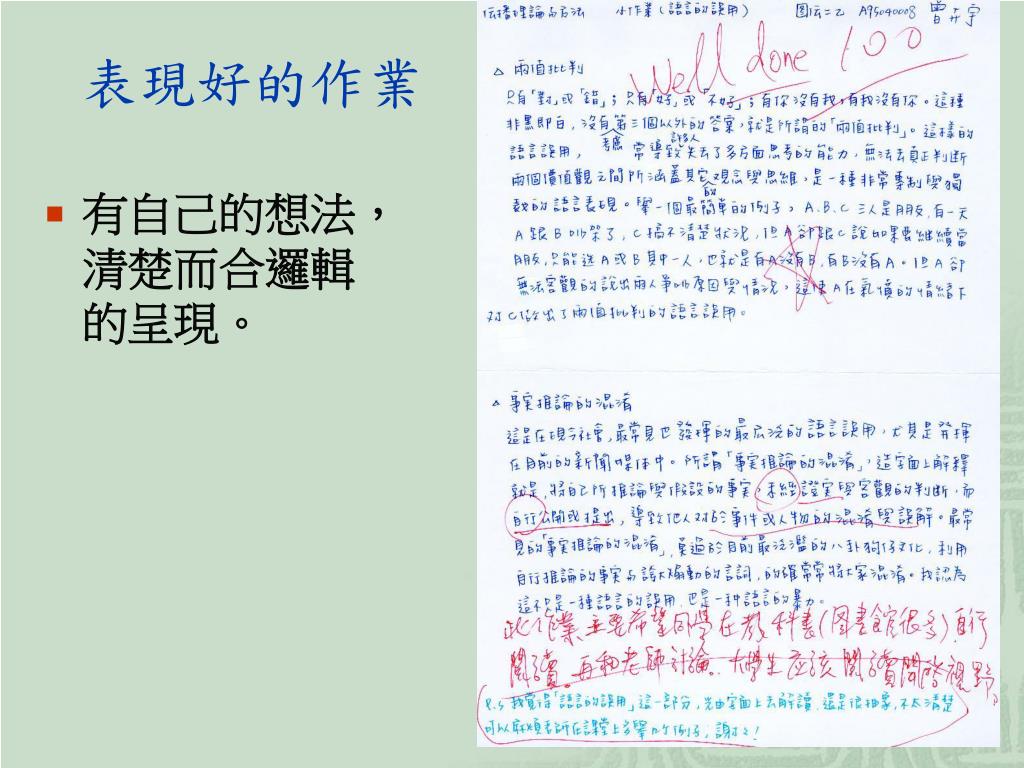 表現好的作業
有自己的想法，
清楚而合邏輯
的呈現。
傳播理論與方法 小作業(語言的誤用) 圖傳二乙 A95040008
Well done 100
△ 兩值批判
只有「對」或「錯」；只有「好」或「不好」；有你沒有我，有我沒有你。這種
非黑即白，沒有第三個以外的答案，就是所謂的「兩值批判」。這樣的
考慮 許多人
語言誤用， 常導致失去了多方面思考的能力，無法去真正判斷
兩個價值觀之間所涵蓋其它的觀念與思維，是一種非常專制與獨
裁的語言表現。舉一個最簡單的例子，A.B.C 三人是朋友，有一天
A 跟 B 吵架了，C 搞不清楚狀況，但 A 卻跟 C 說如果要繼續當
朋友，只能選 A 或 B 其中一人，也就是有A沒有B，有B沒有A。但 A 卻
無法客觀的說出兩人爭吵原因與情況，這使 A 在氣憤的情緒下
對 C 做出了兩值批判的語言誤用。
△ 事實推論的混淆
這是在現今社會，最常見也發揮的最廣泛的語言誤用，尤其是發揮
在目前的新聞媒体中。所謂「事實推論的混淆」，這字面上解釋
就是，將自己所推論與假設的事實，未經證實與客觀的判斷，而
自行公開或提出，導致他人對於事件或人物的混淆與誤解。最常
見的「事實推論的混淆」，莫過於目前最泛濫的八卦狗仔文化，利用
自行推論的事實與誇大煽動的言詞，的確常常將大家混淆。我認為
這不只是一種語言的誤用，也是一种語言的暴力。
此作業主要希望同學在教科書(圖書館很多)自行
閱讀。再和老師討論．大學生應該閱讀開啓視野。
P.S 我覺得「語言的誤用」這一部分，光由字面上去解讀，還是很抽象，不太清楚
可以麻煩老師在課堂上多舉例子；謝謝！